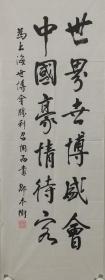 世界世博盛會
中國豪情待客
為上海世博會勝利召開而書